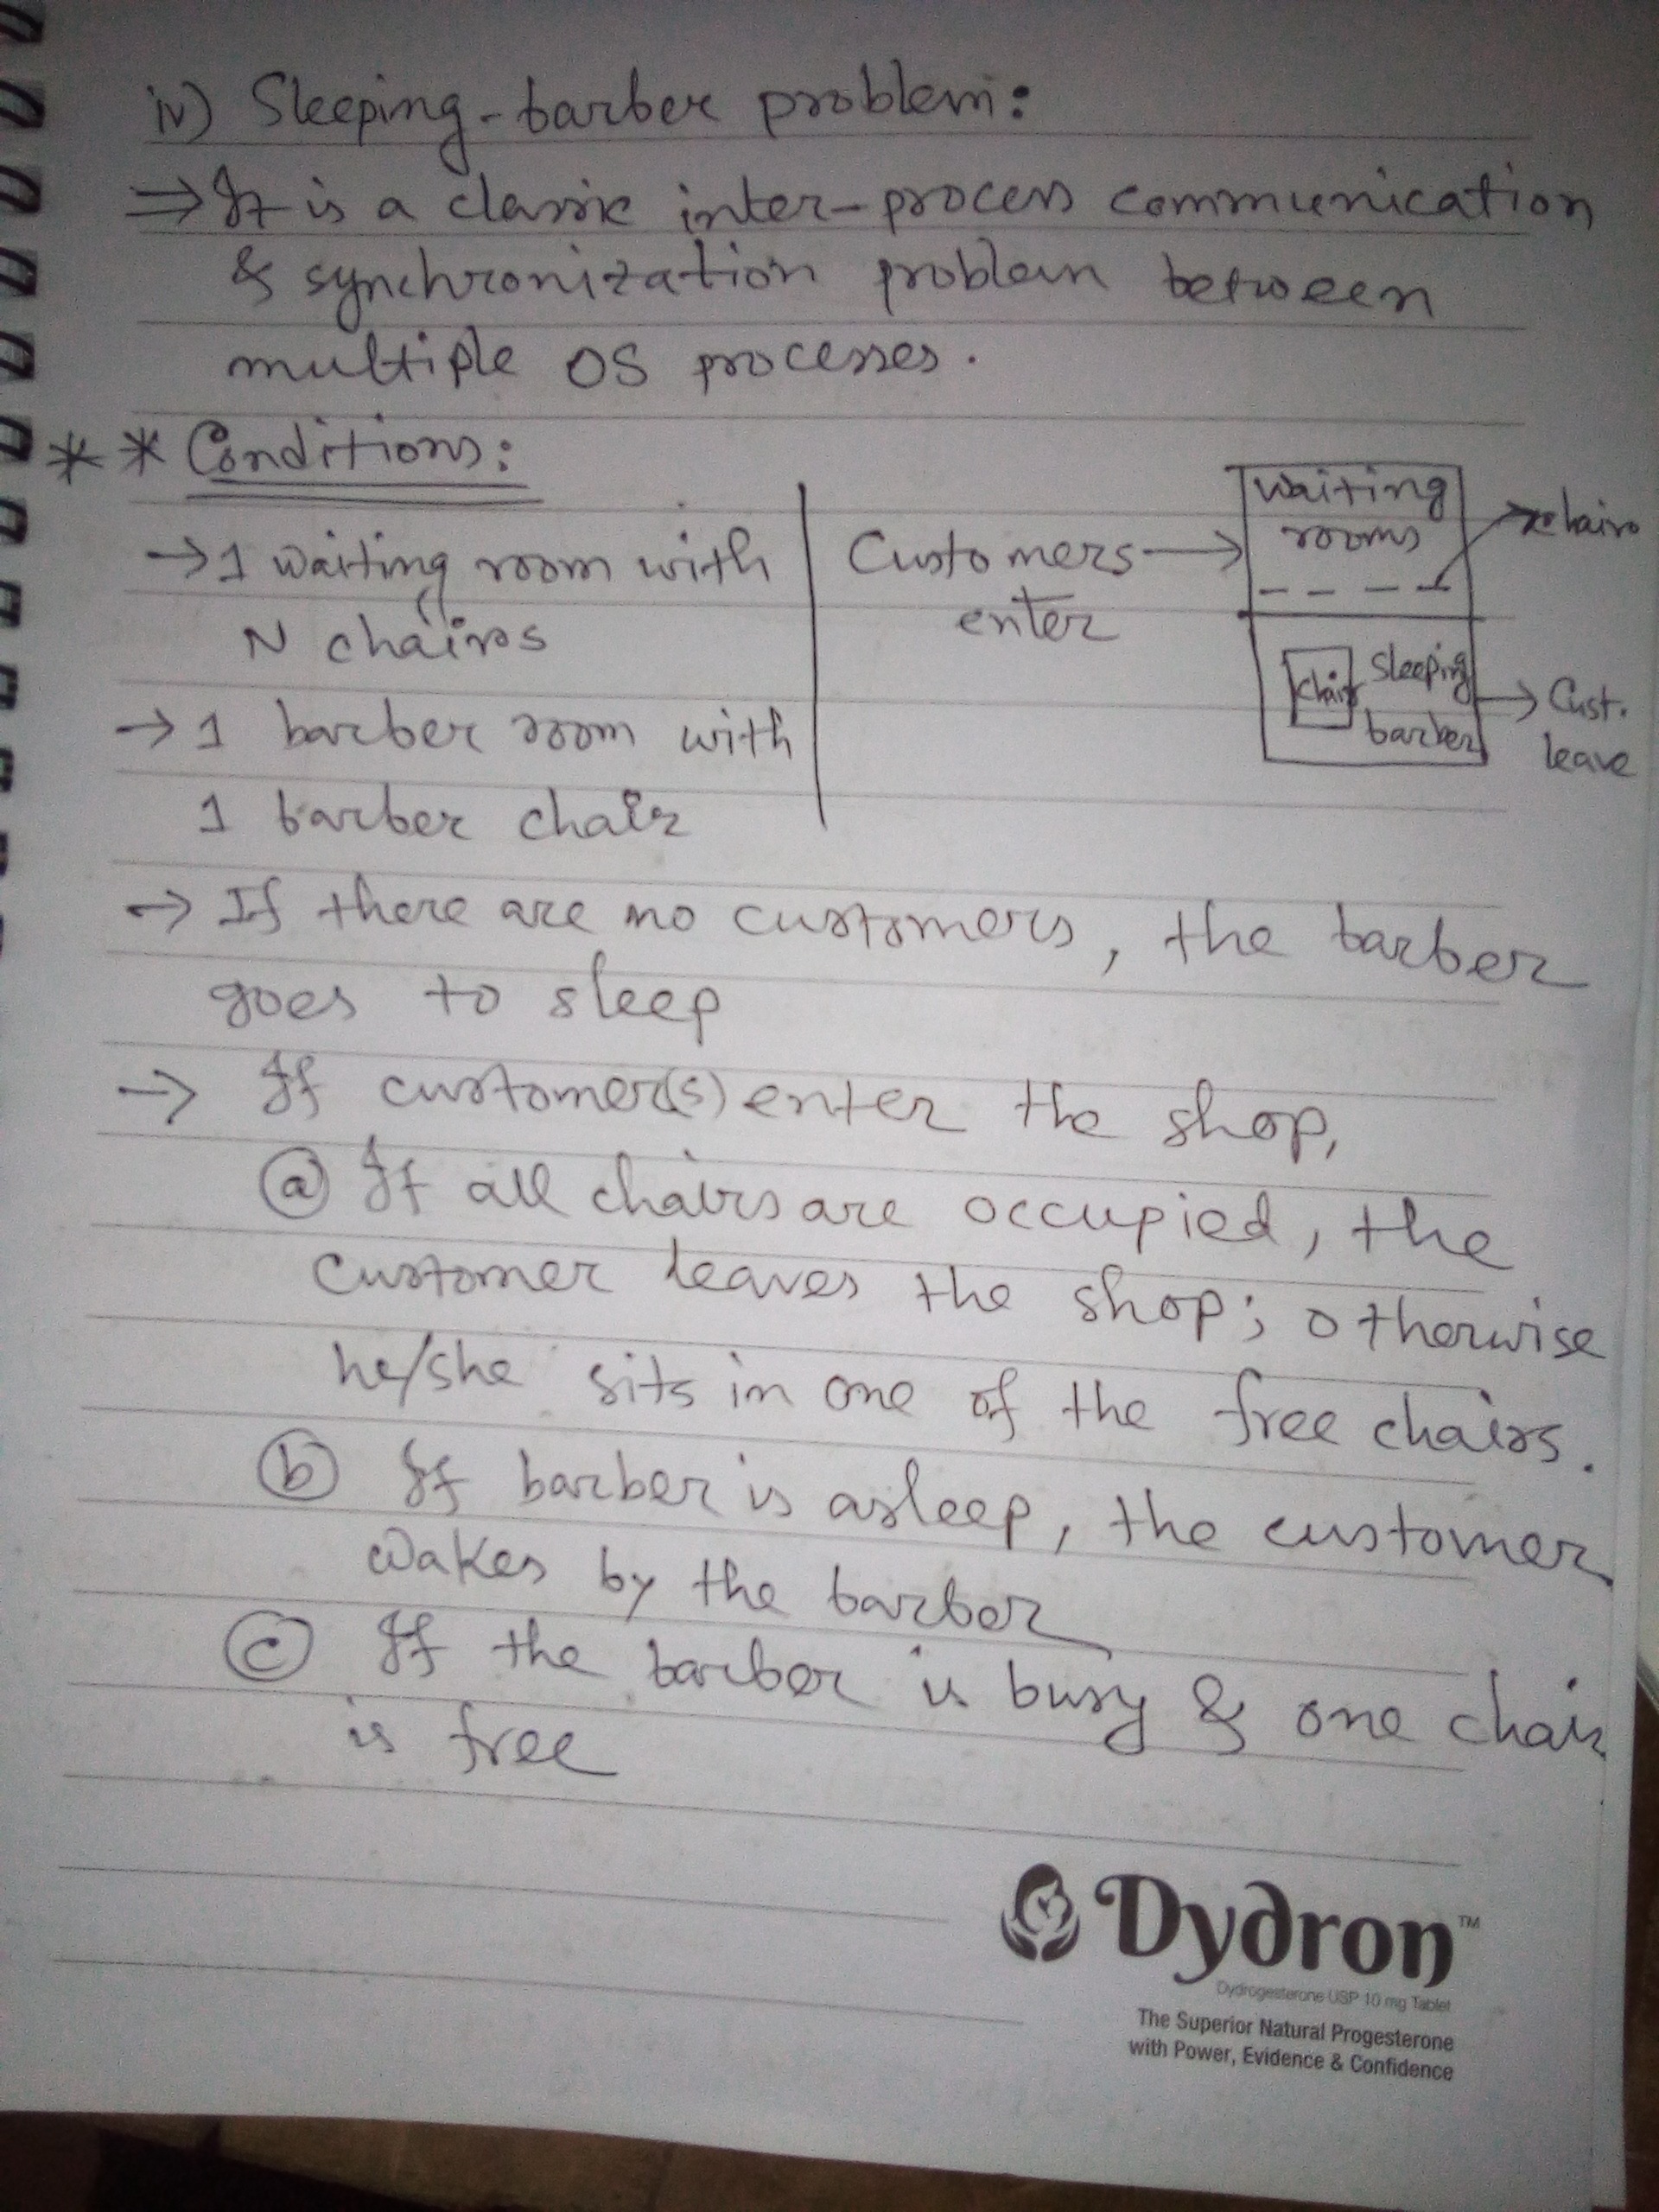 iv) Sleeping-barber problem:
⇒ It is a classic inter-process communication
& synchronization problem between
multiple OS processes.
** Conditions:
→ 1 waiting room with
N chairs
→ 1 barber room with
1 barber chair
Customers →
enter
waiting
rooms
chairs
chair
sleeping
barber
→ Cust.
leave
→ If there are no customers, the barber
goes to sleep
→ If customer(s) enter the shop,
(a) If all chairs are occupied, the
customer leaves the shop; otherwise
he/she sits in one of the free chairs.
(b) If barber is asleep, the customer
wakes by the barber
(c) If the barber is busy & one chair
is free
Dydron™
Dydrogesterone USP 10 mg Tablet
The Superior Natural Progesterone
with Power, Evidence & Confidence